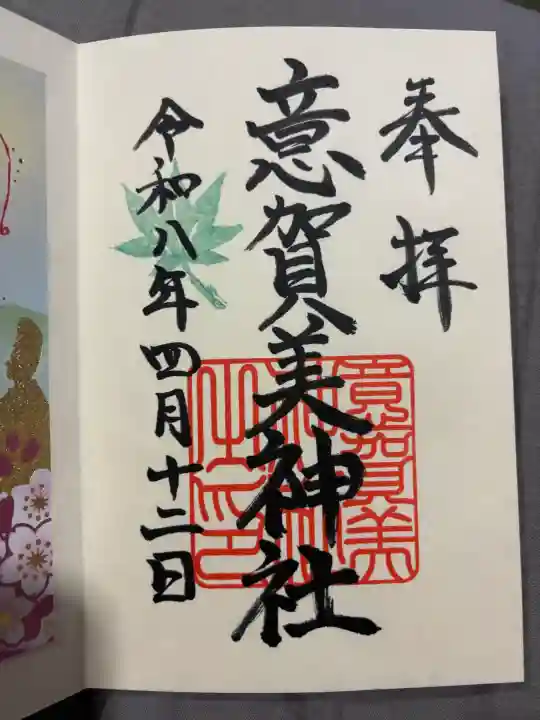 奉拝
意賀美神社
意賀美神社之印
令和八年四月十二日